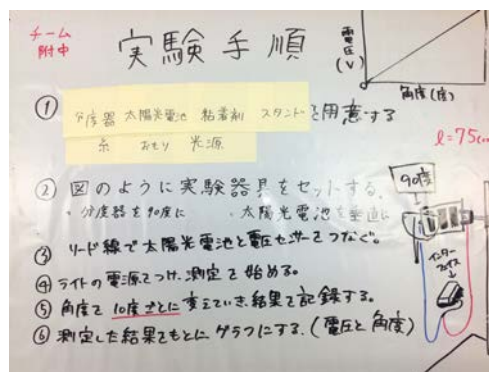 チーム
附中
実験手順
電圧
(V)
角度(度)
① 分度器 太陽光電池 粘着剤 スタンド を用意する
糸 おもり 光源
l=75cm
② 図のように実験器具をセットする。
・分度器を90度に ・太陽光電池を垂直に
90度
③ リード線で太陽光電池と電圧センサーをつなぐ。
④ ライトの電源をつけ、測定を始める。
インター
フェイス
⑤ 角度を10度ごとに変えていき、結果を記録する。
⑥ 測定した結果をもとにグラフにする。(電圧と角度)